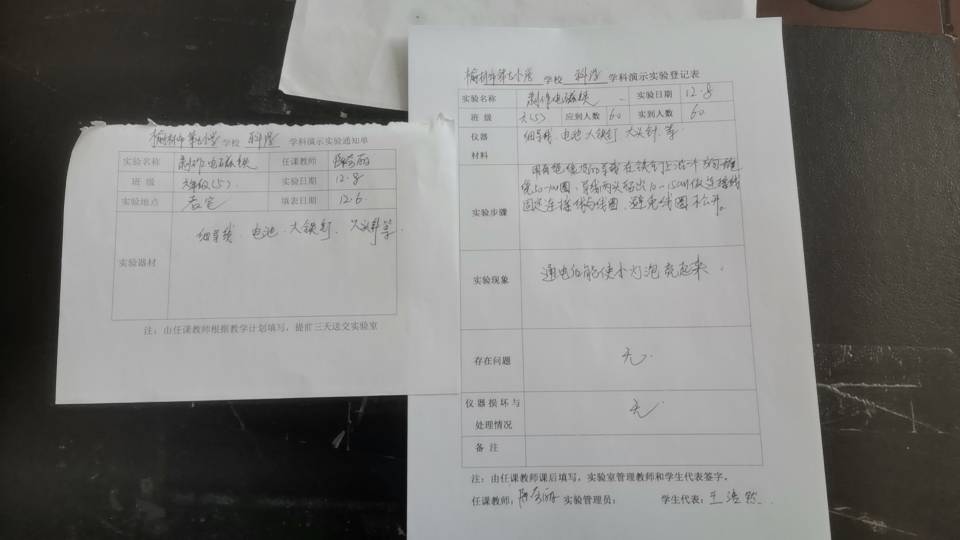 学校 科学 学科演示实验通知单
实验名称 制作电磁铁 任课教师
班 级 六年级(5) 实验日期 12.8
实验地点 填表日期 12.6
实验器材 细导线、电池、大铁钉、大头针等
注：由任课教师根据教学计划填写，提前三天送交实验室
学校 科学 学科演示实验登记表
实验名称 制作电磁铁 实验日期 12.8
班 级 六(5) 应到人数 60 实到人数 60
仪器 细导线 电池 大铁钉 大头针 等
材料
用有绝缘皮的导线在铁钉上沿一个方向
实验步骤 固定连接线与线圈，避免线圈
实验现象 通电后能使小灯泡亮起来。
存在问题 无.
仪器损坏与 无
处理情况
备 注
注：由任课教师课后填写，实验室管理教师和学生代表签字。
任课教师： 实验管理员： 学生代表：王浩然